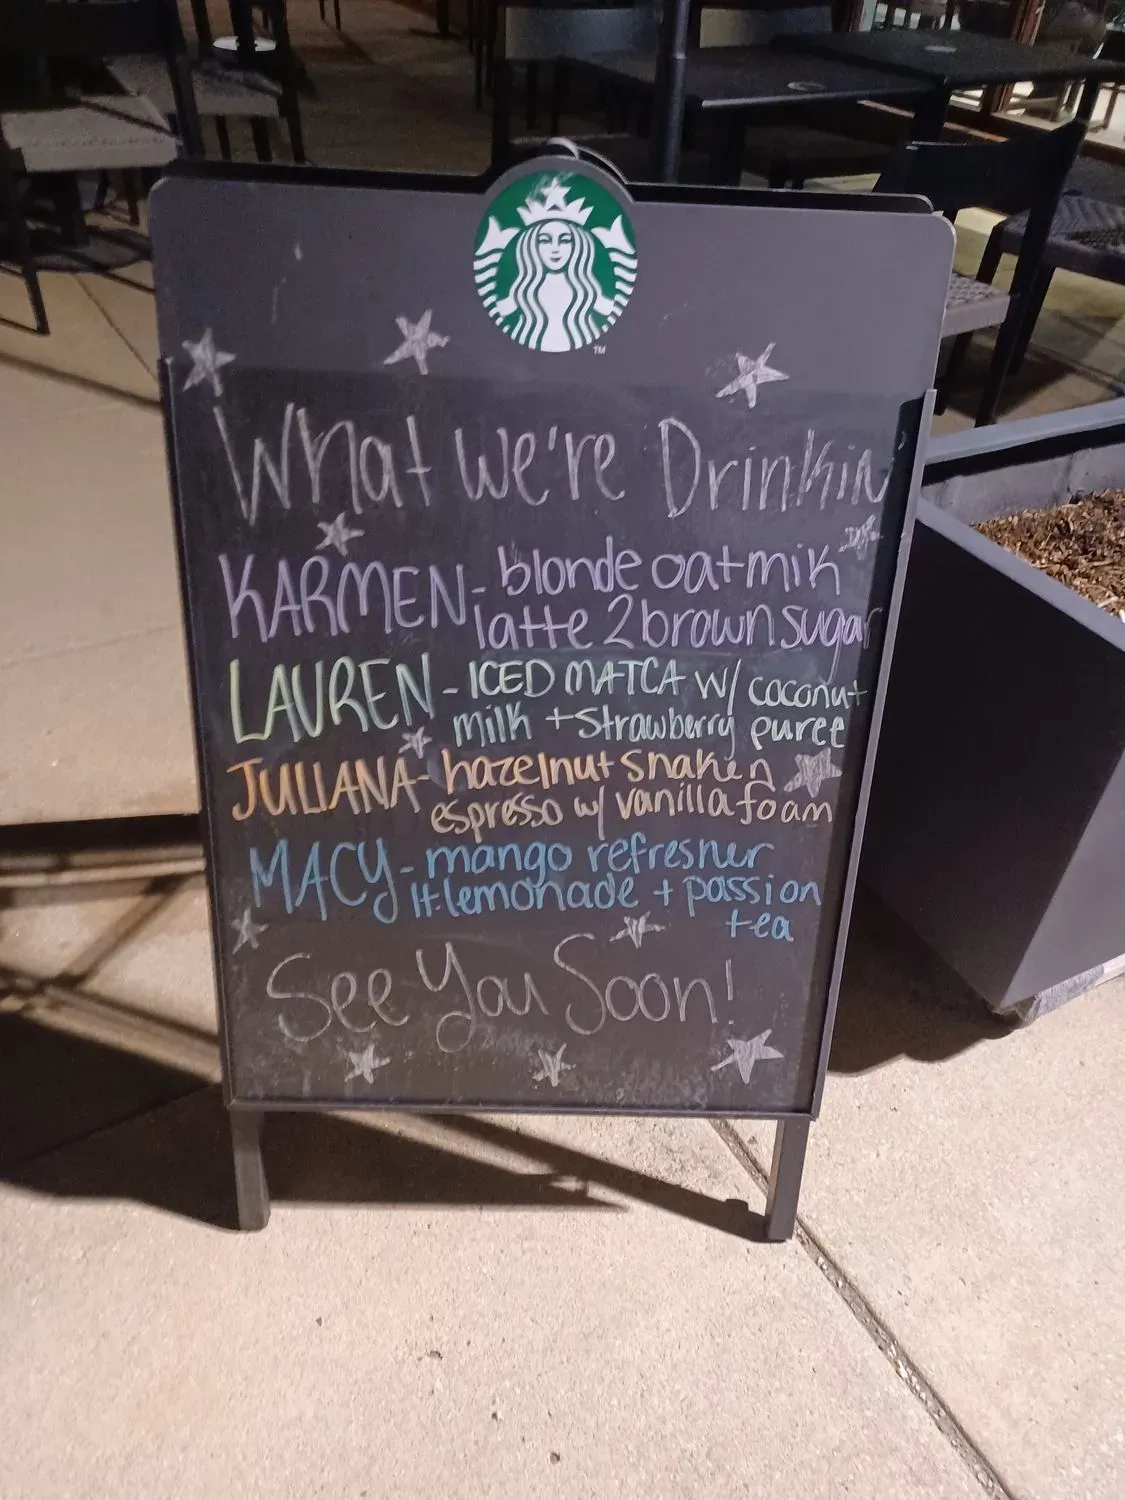 What We're Drinkin
KARMEN - blonde oatmilk
latte 2 brown sugar
LAUREN - ICED MATCA w/ coconut
milk + strawberry puree
JULIANA - hazelnut shaken
espresso w/ vanilla foam
MACY - mango refresher
lt. lemonade + passion
tea
See You Soon!
TM